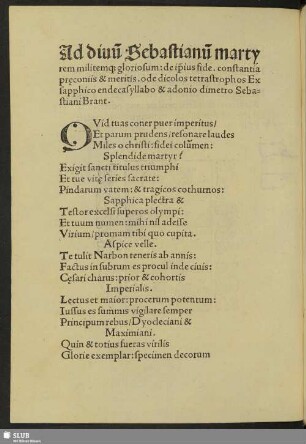 Ad diuū Sebastianū marty
rem militemq; gloriosum: de ip̄ius fide. constantia
pręconijs & meritis. ode dicolos tetrastrophos Ex
sapphico endecasyllabo & adonio dimetro Seba-
stiani Brant.
QVid tuas coner puer imperitus/
Et parum prudens/resonare laudes
Miles o christi: fidei colūmen:
Splendide martyr?
Exigit sancti titulus triumphi
Et tue vitę series sacrate:
Pindarum vatem: & tragicos cothurnos:
Sapphica plectra &
Testor excelsi superos olympi:
Et tuum numen: mihi nil adesse
Virium/promam tibi quo cupita.
Aspice velle.
Te tulit Narbon teneris ab annis:
Factus insubrum es procul inde ciuis:
Cęsari charus: prior & cohortis
Imperialis.
Lectus et maior: procerum potentum:
Iussus es summis vigilare semper
Principum rebus/Dyocleciani &
Maximiani.
Quin & totius fueras virilis
Glorie exemplar: specimen decorum
SLUB